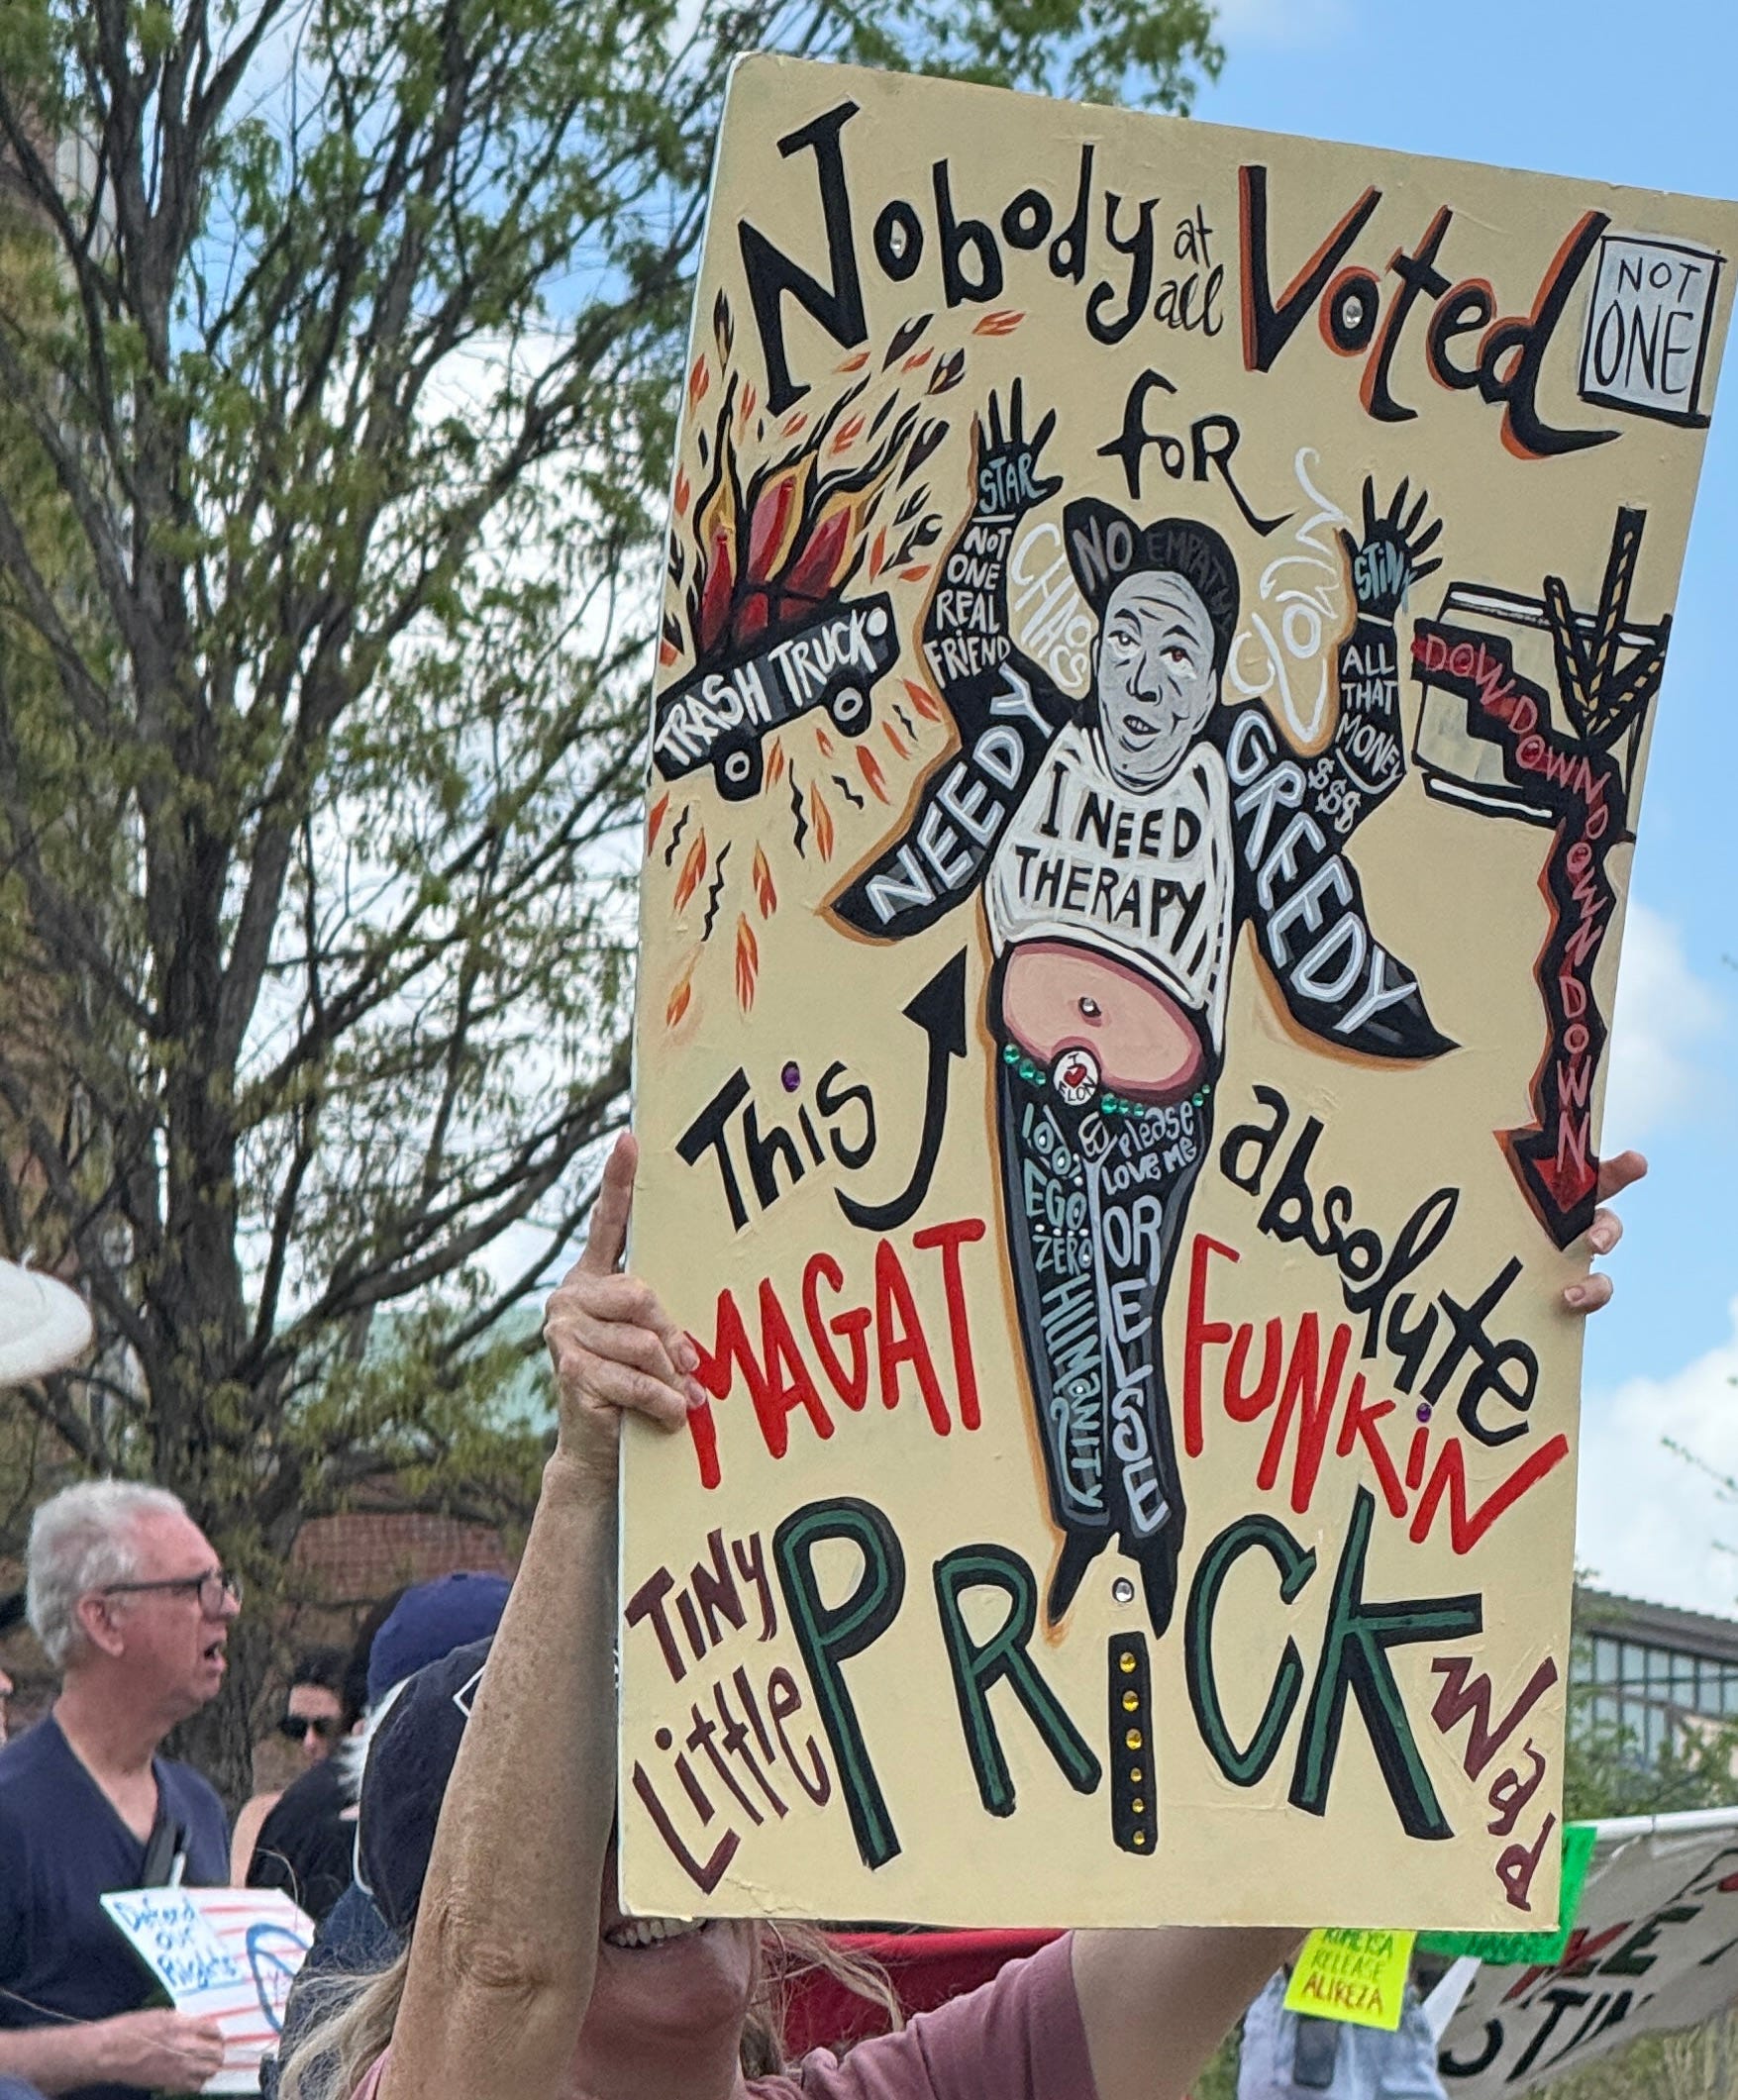 Nobody at all Voted
NOT
ONE
for
STAR
NOT
ONE
REAL
FRIEND
CHAOS
NO EMPATHY
STINK
ALL
THAT
MONEY
$$$
TRASH TRUCK
DOWN DOWN DOWN DOWN DOWN DOWN
NEEDY
GREEDY
I NEED
THERAPY
I
ELON
This
absolute
100%
EGO
ZERO
HUMANITY
please
LOVE ME
OR
ELSE
MAGAT
FUNKiN
TiNy
Little
PRiCK
Wad
Defend
our
Rights
RELEASE
ALIREZA